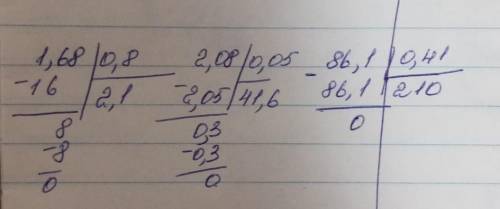 1,68 | 0,8
-16 | 2,1
8
-8
0
2,08 | 0,05
-2,05 | 41,6
0,3
-0,3
0
-86,1 | 0,41
86,1 | 210
0